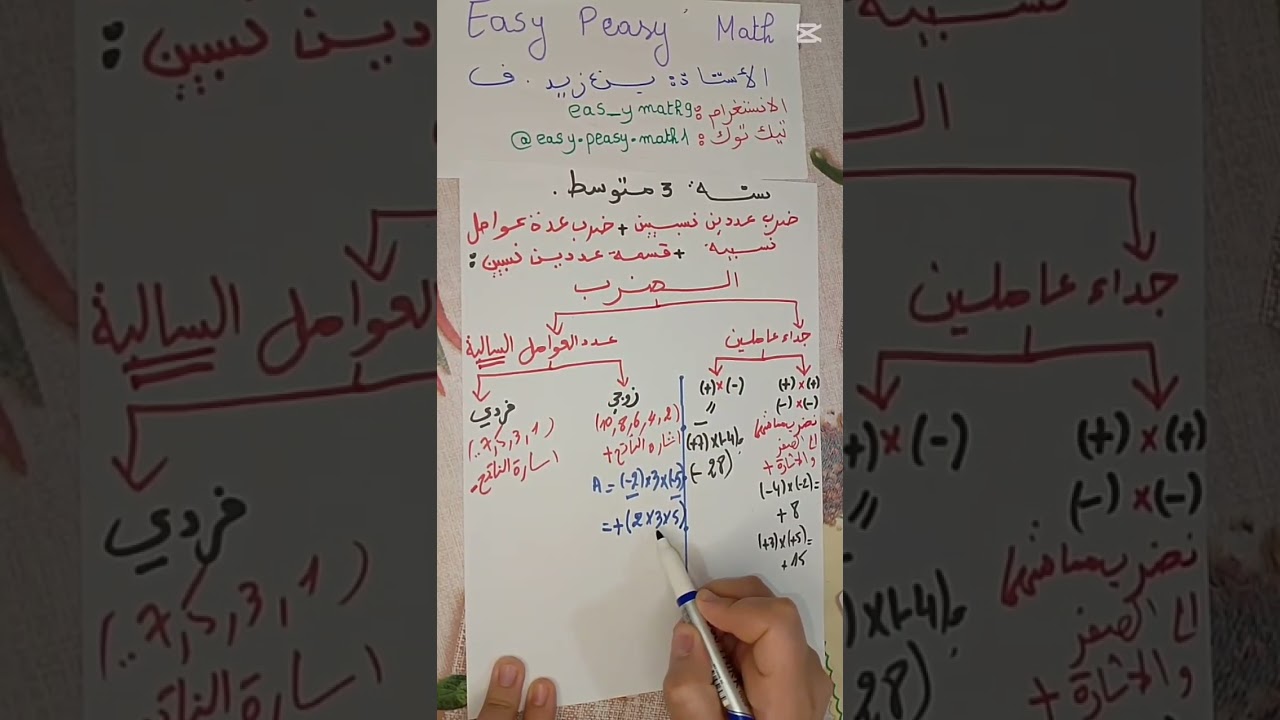 Easy Peasy Math
الأستاذة: بن زيد . ف
الانستغرام: eas_y math9
تيك توك: @easy.peasy.math1
سنة: 3 متوسط.
ضرب عددين نسبيين + ضرب عدة عوامل
نسبية + قسمة عددين نسبيين:
الضرب
جداء عاملين
(+)×(+)
(-)×(-)
نضرب مسافتيهما
الى الصفر
والاشارة +
(-4)×(-2)=
+8
(+3)×(+5)=
+15
(+)×(-)
=
-
(+7)×(-4)=
(-28)
عدد العوامل السالبة
زوجي
(10,8,6,4,2)
اشارة الناتج +
A = (-2)×3×(-5)
= +(2×3×5)
فردي
(..7,5,3,1)
اشارة الناتج -